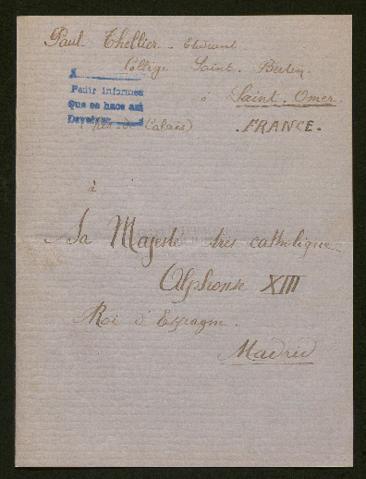 Paul Thellier - Etudiant
Collège Saint-Bertin
à Saint-Omer
Pedir informes
Que se hace así
Devolver
(Pas-de-Calais) FRANCE.
à
Sa Majesté très catholique
Alphonse XIII
Roi d'Espagne.
Madrid